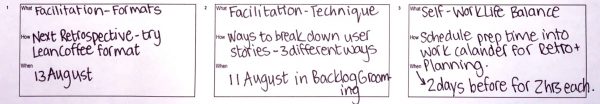 1
What Facilitation-Formats
How Next Retrospective-try
LeanCoffee format
When
13 August
2
What Facilitation-Technique
How Ways to break down user
stories - 3 different ways
When
11 August in Backlog Groom-
ing
3
What Self-Work Life Balance
How Schedule prep time into
work calander for Retro+
When Planning.
2 days before for 2hrs each.